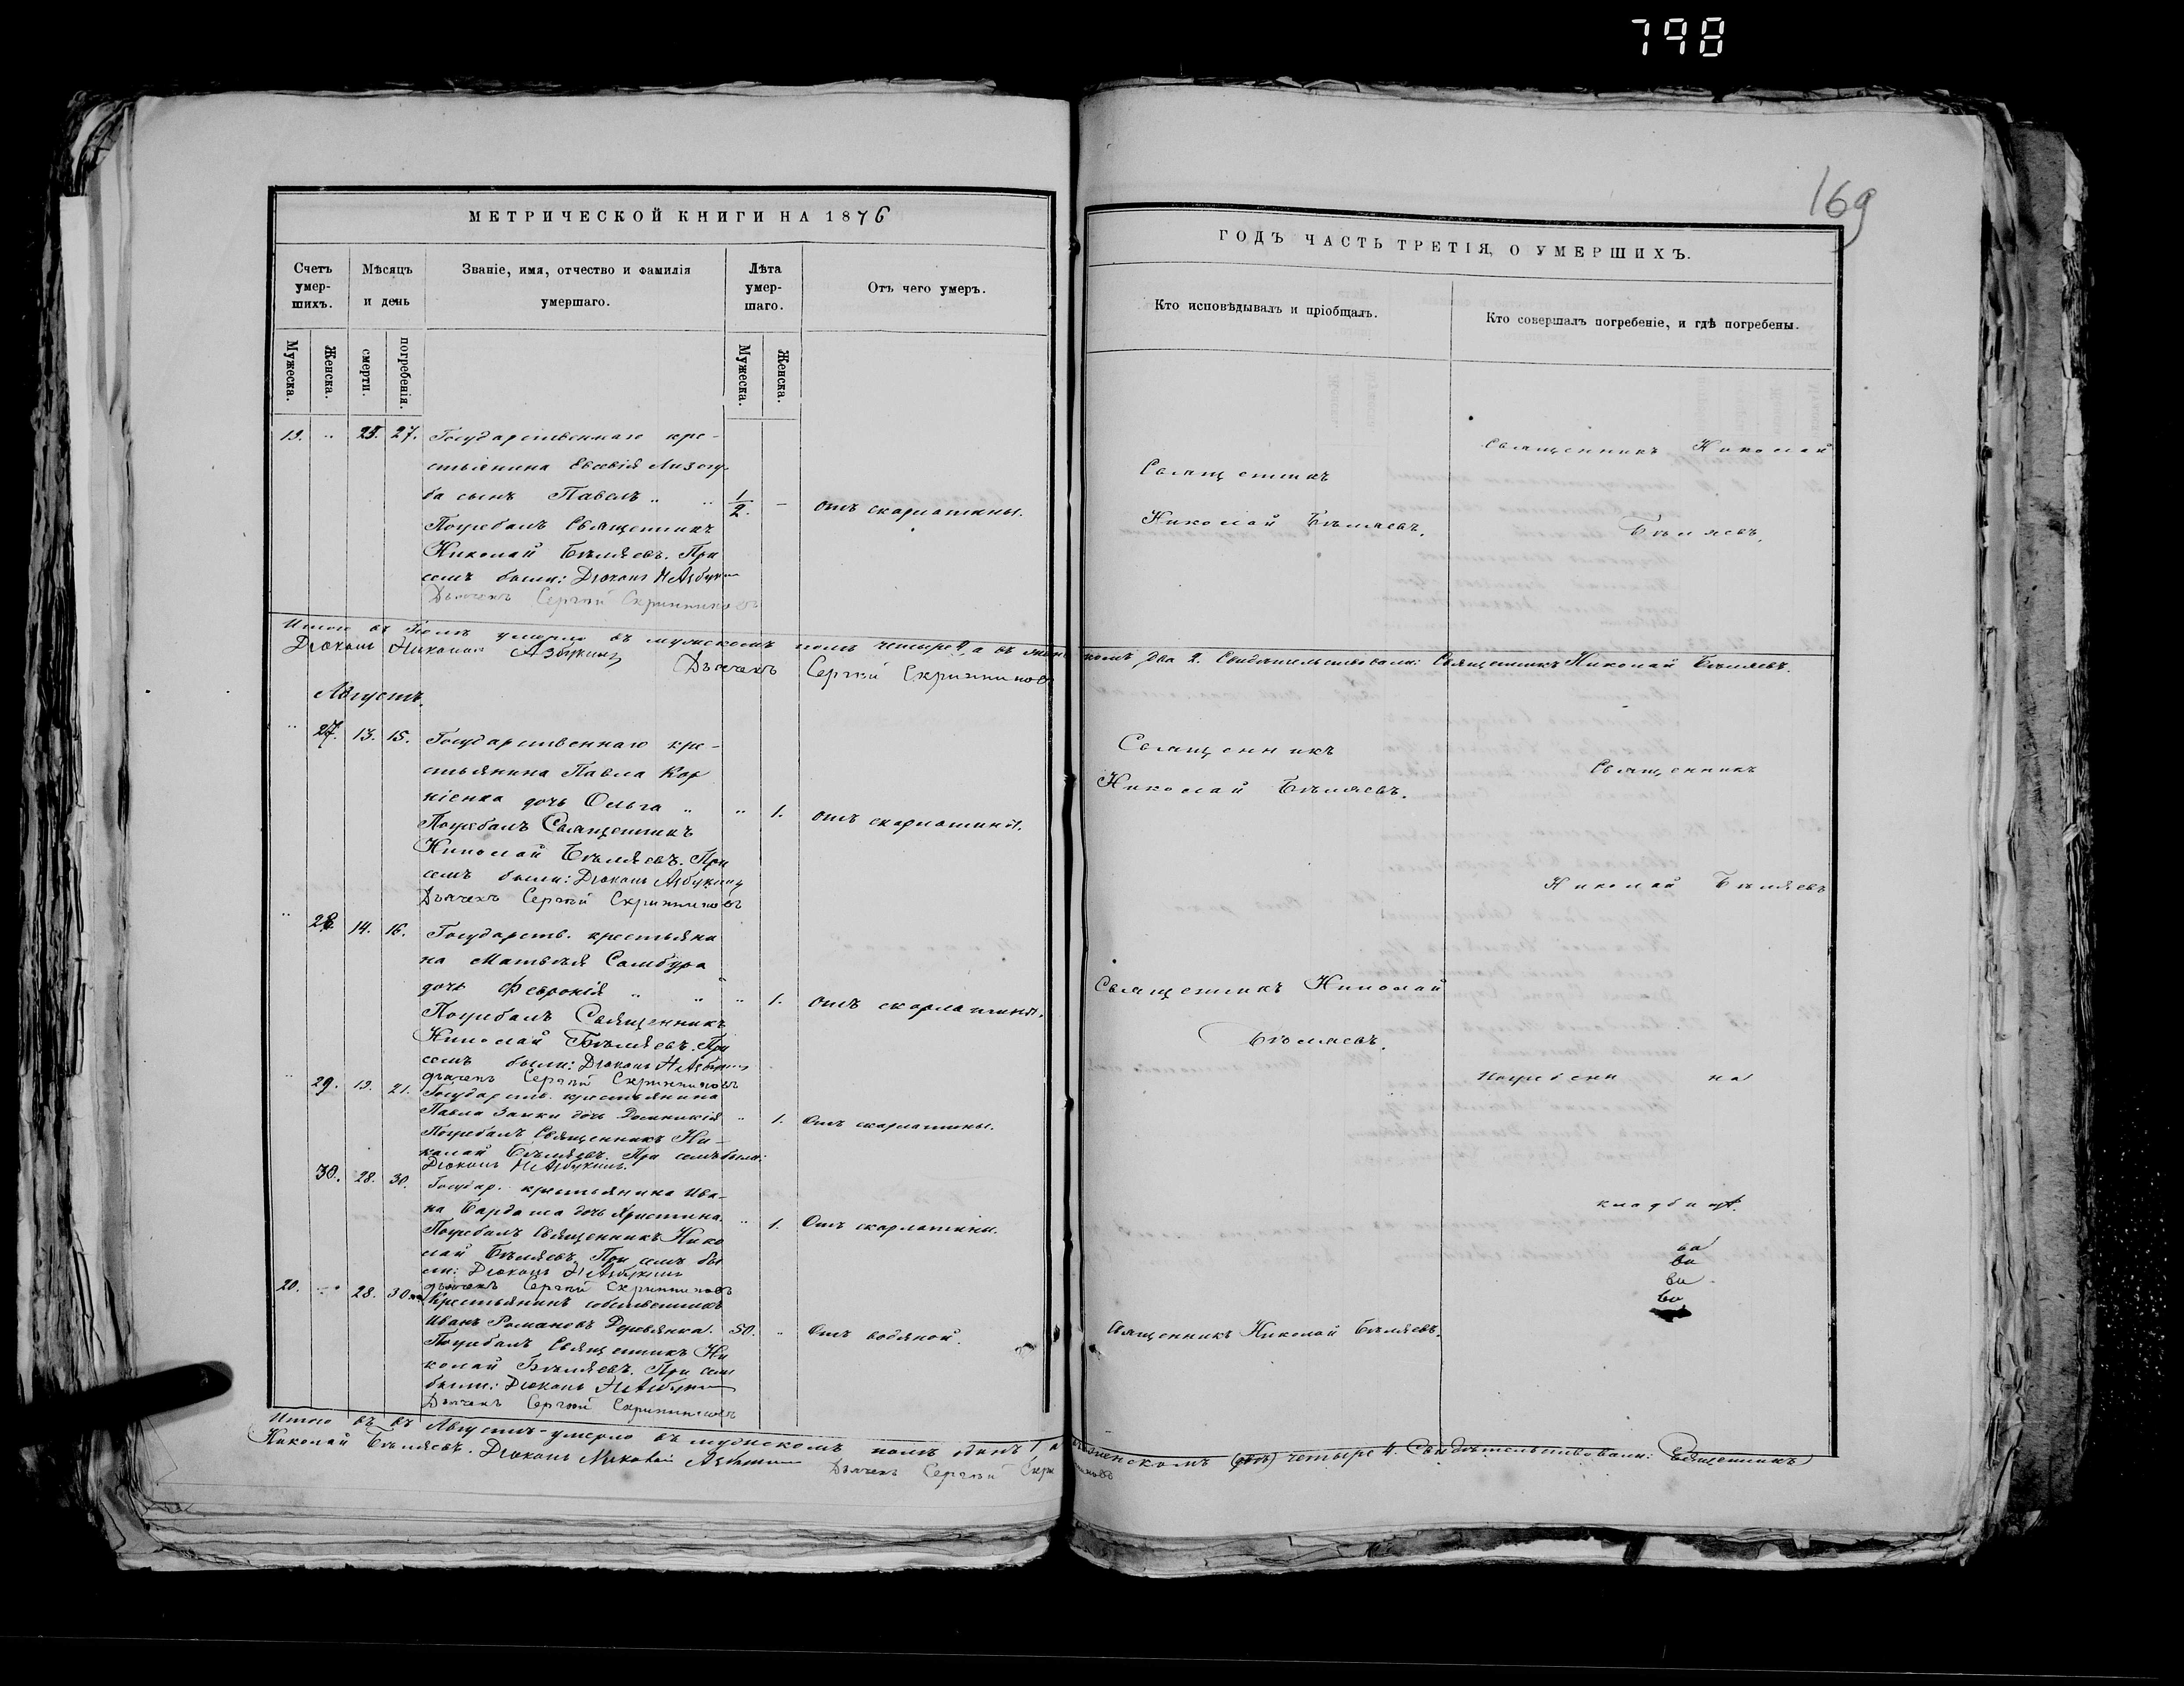 798
169
МЕТРИЧЕСКОЙ КНИГИ НА 1876
ГОДЪ ЧАСТЬ ТРЕТІЯ, О УМЕРШИХЪ.
Счетъ умер-шихъ.
Мѣсяцъ и день
Званіе, имя, отчество и фамилія умершаго.
Лѣта умер-шаго.
Отъ чего умеръ.
Кто исповѣдывалъ и пріобщалъ.
Кто совершалъ погребеніе, и гдѣ погребены.
Мужеска.
Женска.
смерти.
погребенія.
Мужеска.
Женска.
19. 25. 27. Государственнаго кре-
стьянина Евсевія Лизогу-
ба сынъ Павелъ 1/2. Отъ скарлатины.
Погребалъ Священникъ
Николай Бѣляевъ. При
семъ были: Діаконъ Н Азбукин
Дьячекъ Сергій Скрипниковъ
Священникъ
Николай Бѣляевъ.
Священникъ Николай
Бѣляевъ.
Итого въ умерло въ мужескомъ полѣ четыре 4, а въ женскомъ два 2. Свидѣтельствовали: Священникъ Николай Бѣляевъ.
Діаконъ Азбукинъ Дьячекъ Сергій Скрипниковъ
Августъ.
27. 13. 15. Государственнаго кре-
стьянина Павла Кор
ніенка дочь Ольга 1. Отъ скарлатины.
Погребалъ Священникъ
Николай Бѣляевъ. При
семъ были: Діаконъ Азбукинъ
Дьячекъ Сергій Скрипниковъ
Священникъ
Николай Бѣляевъ.
Священникъ
Николай Бѣляевъ
28. 14. 16. Государств. крестьяни
на Матвѣя Самбура
дочь Февронія 1. Отъ скарлатины.
Погребалъ Священникъ
Николай Бѣляевъ. При
семъ были: Діаконъ Н Азбукинъ
дьячекъ Сергій Скрипниковъ
Священникъ Николай
Бѣляевъ.
29. 19. 21. Государств. крестьянина
Павла Заики дочь Домникія 1. Отъ скарлатины.
Погребалъ Священникъ Ни-
колай Бѣляевъ. При семъ были:
Діаконъ Н Азбукинъ.
Погребены на
30. 28. 30. Государ. крестьянина Ива-
на дочь Христина. 1. Отъ скарлатины.
Погребалъ Священникъ Нико
лай Бѣляевъ. При семъ бы
ли: Діаконъ Н Азбукинъ
дьячекъ Сергій Скрипниковъ
кладбищѣ.
20. 28. 30. Крестьянинъ собственникъ
Иванъ Романовъ Деревянка. 50. Отъ водяной.
Погребалъ Священникъ Ни
колай Бѣляевъ. При семъ
были: Діаконъ Н Азбукин
Дьячекъ Сергій Скрипниковъ
Священникъ Николай Бѣляевъ.
Итого въ въ Августѣ умерло въ мужескомъ полѣ одинъ 1 а въ женскомъ четыре 4. Свидѣтельствовали: Священникъ
Николай Бѣляевъ. Діаконъ Дьячекъ Сергій Скрипниковъ